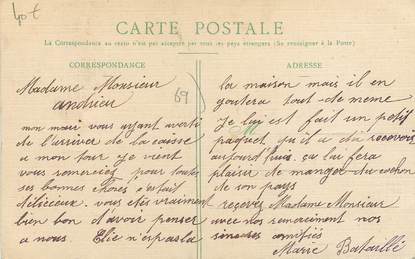 Lot
CARTE POSTALE
La Correspondance au recto n'est pas acceptée par tous les pays étrangers (Se renseigner à la Poste)
CORRESPONDANCE
Madame Monsieur
andrieu
mon mari vous ayant averti
de l'arriver de la caisse
a mon tour je vient
vous remerciez pour toute
ses bonnes choses s'etait
délicieux. vous êtes vraiment
bien bon d'avoir penser
a nous. Elie n'est pas la
69
ADRESSE
la maison mais il en
goutera tout de meme
Je lui est fait un petit
paquet, qu'il a dû recevoir
aujourd'hui. ça lui fera
plaisir de manger du cochon
de son pays
recevez Madame Monsieur
avec nos remerciment nos
sinceres amitiés
Marie Bataillé